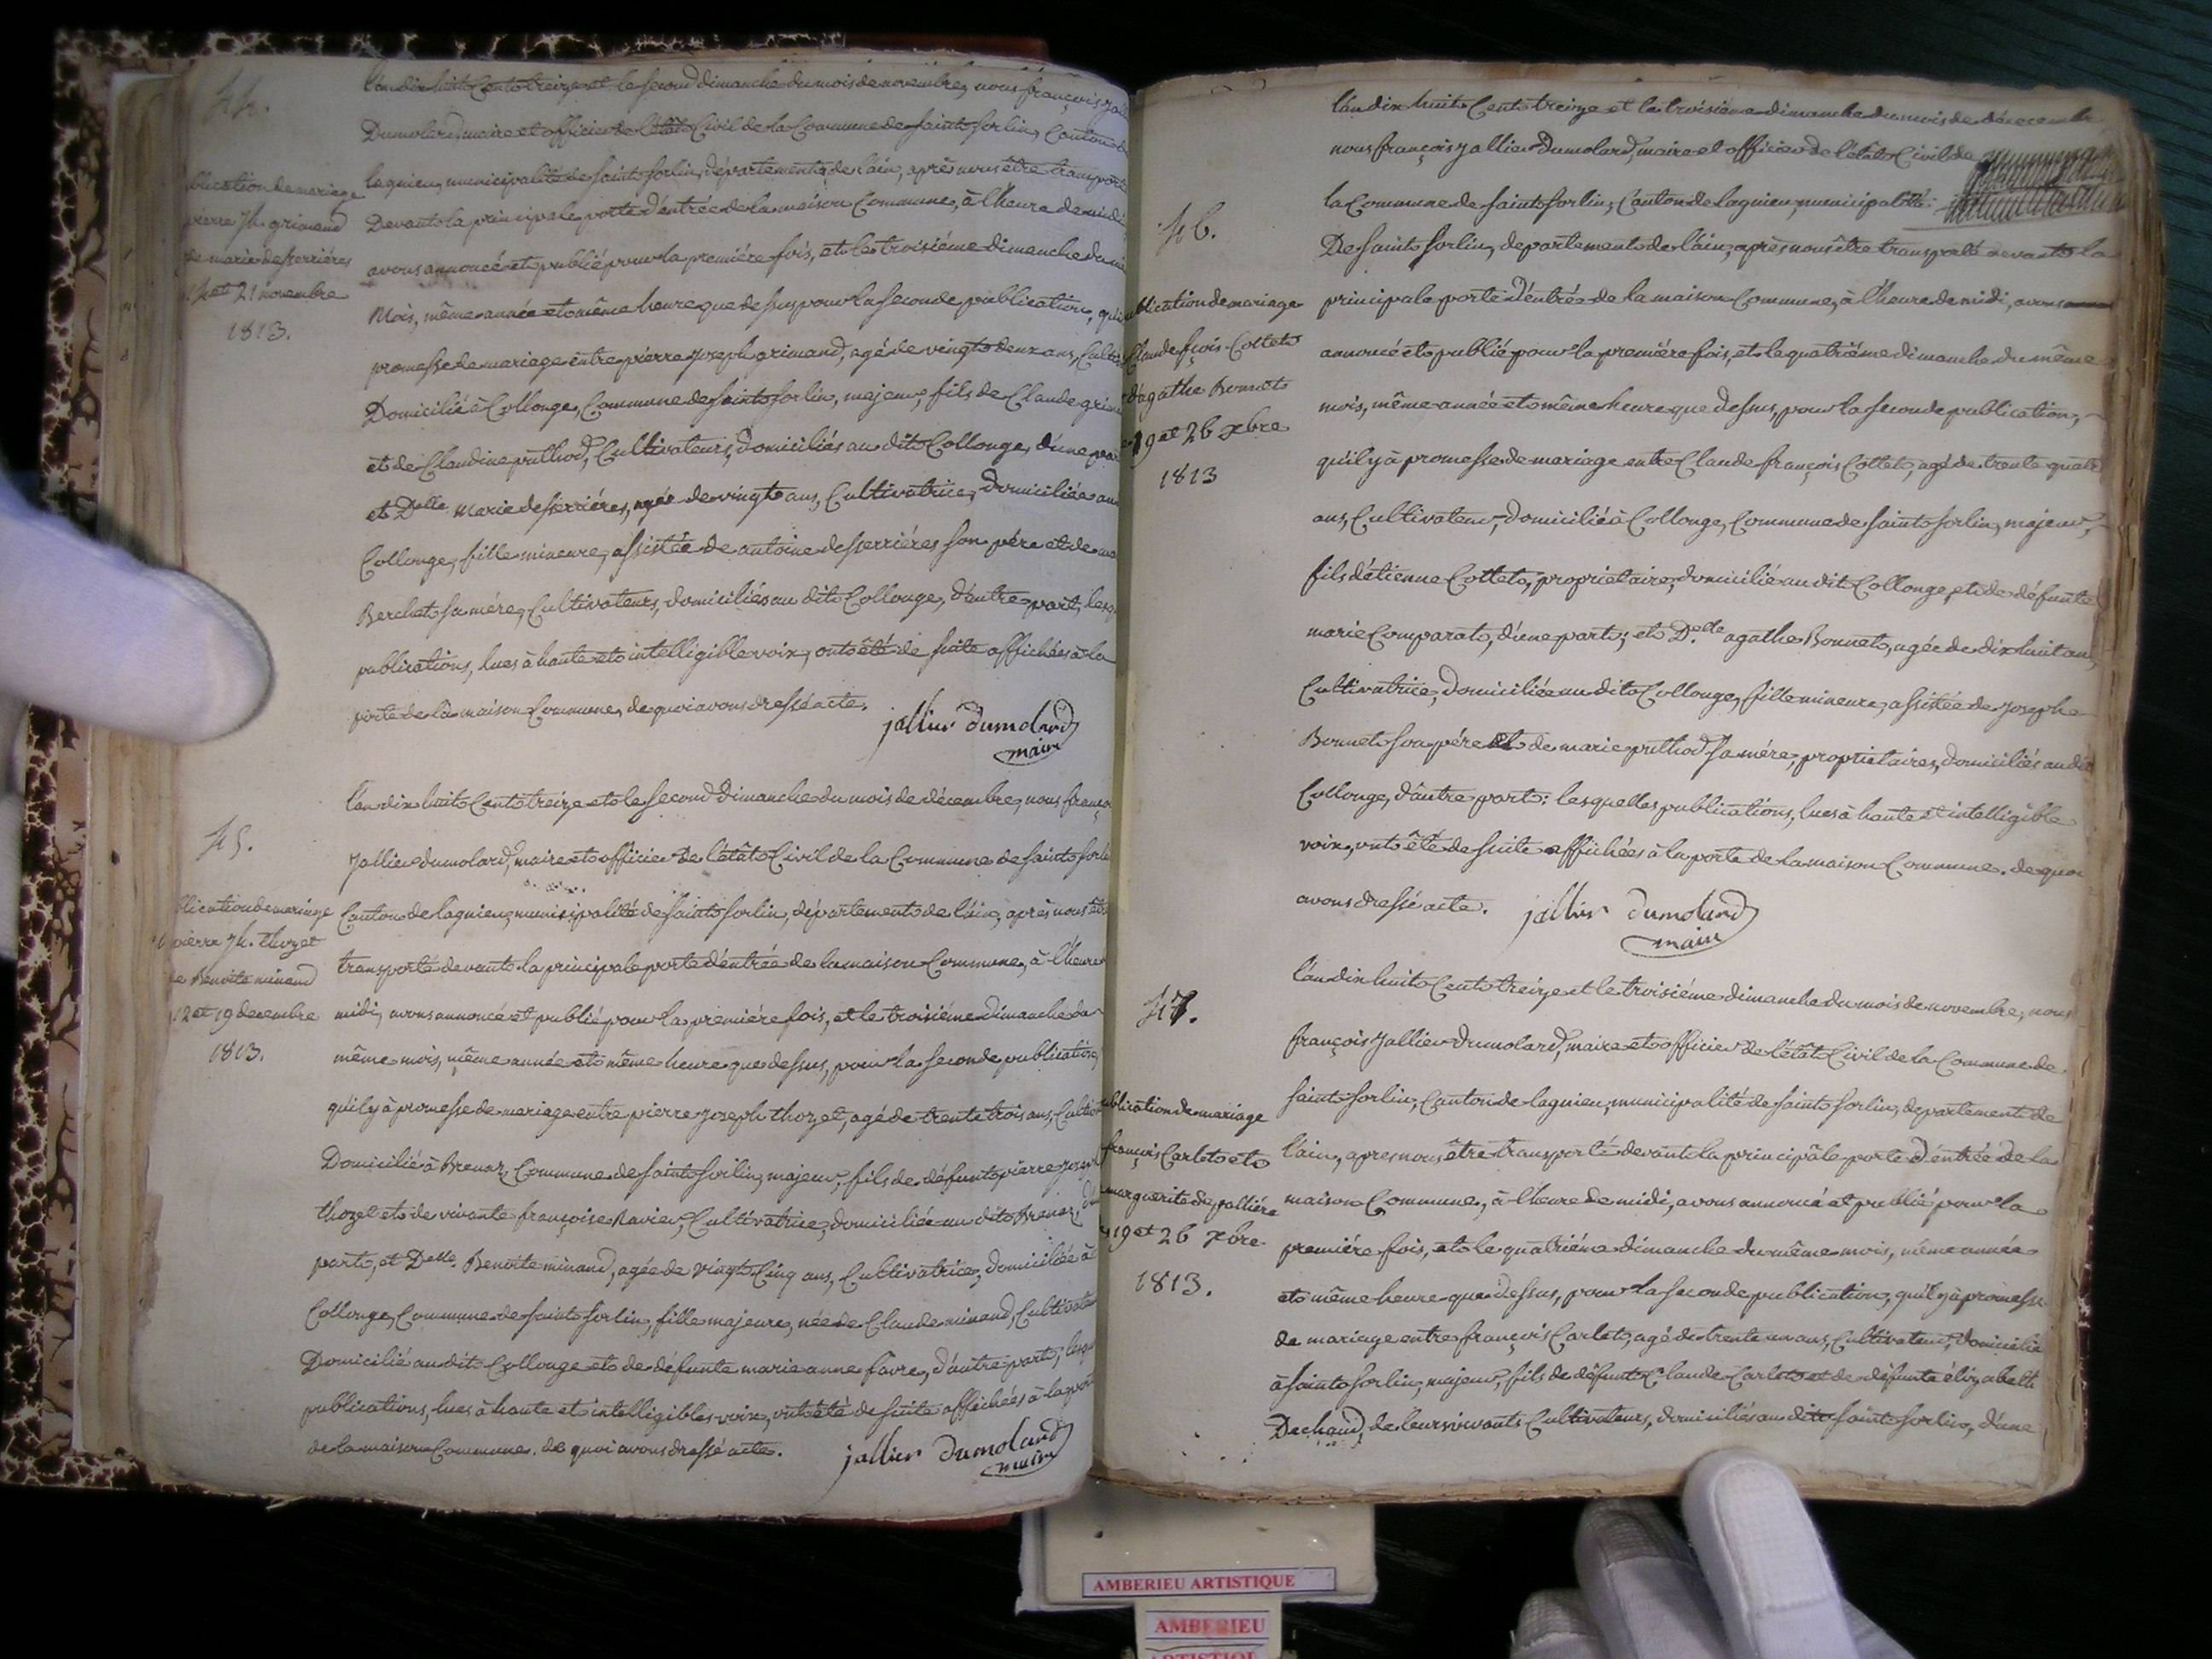 44.
blication de mariage
pierre Jh. grimand
de marie desserriéres
14 et 21 novembre
1813.
L'an dix huit Cent treize et le second dimanche du mois de novembre, nous françois Jal
Dumolard, maire et officier de l'état Civil de la Commune de saint sorlin, Canton de
lagnieu, municipalité de saint sorlin, département de l'ain, après nous être transporté
Devant la principale porte d'entrée de la maison Commune, à l'heure de midi,
avons annoncé et publié pour la premiére fois, et le troisiéme dimanche du mê
Mois, même année et même heure que dessus pour la seconde publication, qu'il
promesse de mariage entre pierre Joseph grimand, agé de vingt deux ans, Cultiv
Domicilié à Collonge, Commune de saint sorlin, majeur, fils de Claude grim
et de Claudine prithod, Cultivateurs, domiciliés au dit Collonge, d'une par
et Delle marie desserriéres, agée de vingt ans, Cultivatrice, domiciliée au
Collonge, fille mineure, assistée de antoine desserriéres son pére et de ma
Berchet sa mére, Cultivateurs, domiciliés au dit Collonge, d'autre part, lesq
publications, lues à haute et intelligible voix, ont été de suite affichées à la
porte de la maison Commune, de quoi avons dressé acte.
jallier dumolard
maire
45.
blication de mariage
pierre Jh. thozet
e Benoite minand
12 et 19 decembre
1813.
L'an dix huit Cent treize et le second dimanche du mois de décembre, nous franço
Jallier dumolard, maire et officier de l'état Civil de la Commune de saint sorlin
Canton de lagnieu, municipalité de saint sorlin, département de l'ain, après nous êt
transporté devant la principale porte d'entrée de la maison Commune, à l'heure
midi, avons annoncé et publié pour la premiére fois, et le troisiéme dimanche du
même mois, même année et même heure que dessus, pour la seconde publication,
qu'il y à promesse de mariage entre pierre Joseph thozet, agé de trente trois ans, Cultiv
Domicilié à Brenaz, Commune de saint sorlin, majeur, fils de défunt pierre Joseph
thozet et de vivante françoise Ravier, Cultivatrice, domiciliée au dit Brenaz, d'u
part, et Delle. Benoite minand, agée de vingt Cinq ans, Cultivatrice, domiciliée à
Collonge, Commune de saint sorlin, fille majeure, née de Claude minand, Cultivate
Domicilié au dit Collonge et de défunte marie anne favre, d'autre part; lesqu
publications, lues à haute et intelligibles voix, ont été de suite affichées à la por
de la maison Commune. de quoi avons dressé acte.
jallier dumolard
maire
46.
ublication de mariage
Claude fçois. Cottet
d'agathe Bonnet
19 et 26 xbre
1813
L'an dix huit Cent treize et le troisiéme dimanche du mois de décembre
nous françois Jallier Dumolard, maire et officier de l'état Civil de
la Commune de saint sorlin, Canton de lagnieu, municipalité
De saint sorlin, departement de l'ain, après nous être transporté devant la
principale porte d'entrée de la maison Commune, à l'heure de midi, avons
annoncé et publié pour la premiére fois, et le quatriéme dimanche du même
mois, même année et même heure que dessus, pour la seconde publication,
qu'il y à promesse de mariage entre Claude françois Cottet, agé de trente quatre
ans, Cultivateur, domicilié à Collonge, Commune de saint sorlin, majeur,
fils d'étienne Cottet, propriétaire, domicilié au dit Collonge, et de défunte
marie Comparat, d'une part; et D.elle agathe Bonnet, agée de dix huit ans,
Cultivatrice, domiciliée au dit Collonge, fille mineure, assistée de Joseph
Bonnet son pére et de marie prithod sa mére, propriétaires, domiciliés au dit
Collonge, d'autre part: lesquelles publications, lues à haute et intelligible
voix, ont été de suite affichées à la porte de la maison Commune. de quoi
avons dressé acte.
jallier dumolard
maire
47.
ublication de mariage
françois Carlet et
marguerite de palliére
19 et 26 xbre
1813.
L'an dix huit Cent treize et le troisiéme dimanche du mois de novembre, nous
françois Jallier Dumolard, maire et officier de l'état Civil de la Commune de
saint sorlin, Canton de lagnieu, municipalité de saint sorlin, departement de
l'ain, apres nous être transporté devant la principale porte d'entrée de la
maison Commune, à l'heure de midi, avons annoncé et publié pour la
premiére fois, et le quatriéme dimanche du même mois, même année
et même heure que dessus, pour la seconde publication, qu'il y à promesse
de mariage entre françois Carlet, agé de trente un ans, Cultivateur, domicilié
à saint sorlin, majeur, fils de défunt Claude Carlet et de défunte élizabeth
Dechaud, de leurs vivants Cultivateurs, domiciliés au dit saint sorlin, d'une
AMBERIEU ARTISTIQUE
AMBERIEU
ARTISTIQUE